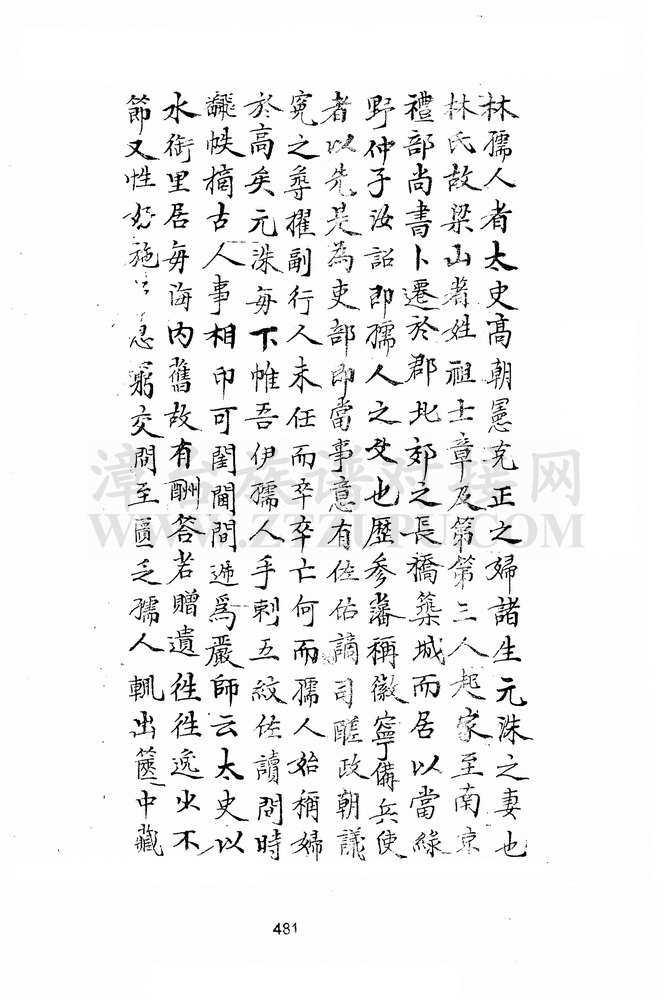 林孺人者太史高朝憲克正之婦諸生元洙之妻也
林氏故梁山著姓祖士章及第第三人起家至南京
禮部尚書卜遷於郡北郊之長橋築城而居以當綠
野仲子汝詔即孺人之父也歷參藩稱徽寧備兵使
者以先是為吏部郎當事意有佐佑謫司醝政朝議
寃之尋擢副行人未任而卒卒亡何而孺人始稱婦
於高矣元洙每下帷吾伊孺人手刺五紋佐讀間時
飜帙摘古人事相印可閨閫間遞爲嚴師云太史以
水衡里居每海内舊故有酬答若贈遺徃徃逸出不
節又性好施急窮交間至匱乏孺人輒出篋中藏
481
漳台族谱对接网
WWW.ZTZUPU.COM